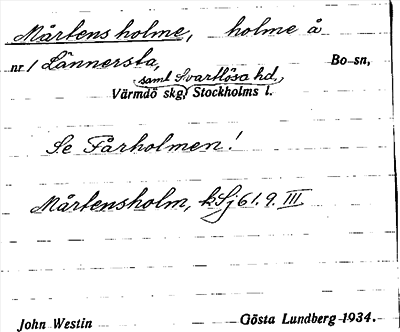 Mårtensholme, holme å
nr 1 Lännersta, Bo sn,
samt Svartlösa hd,
Värmdö skg, Stockholms l.
Se Fårholmen!
Mårtensholm, kSj 61.9. III
John Westin Gösta Lundberg 1934.